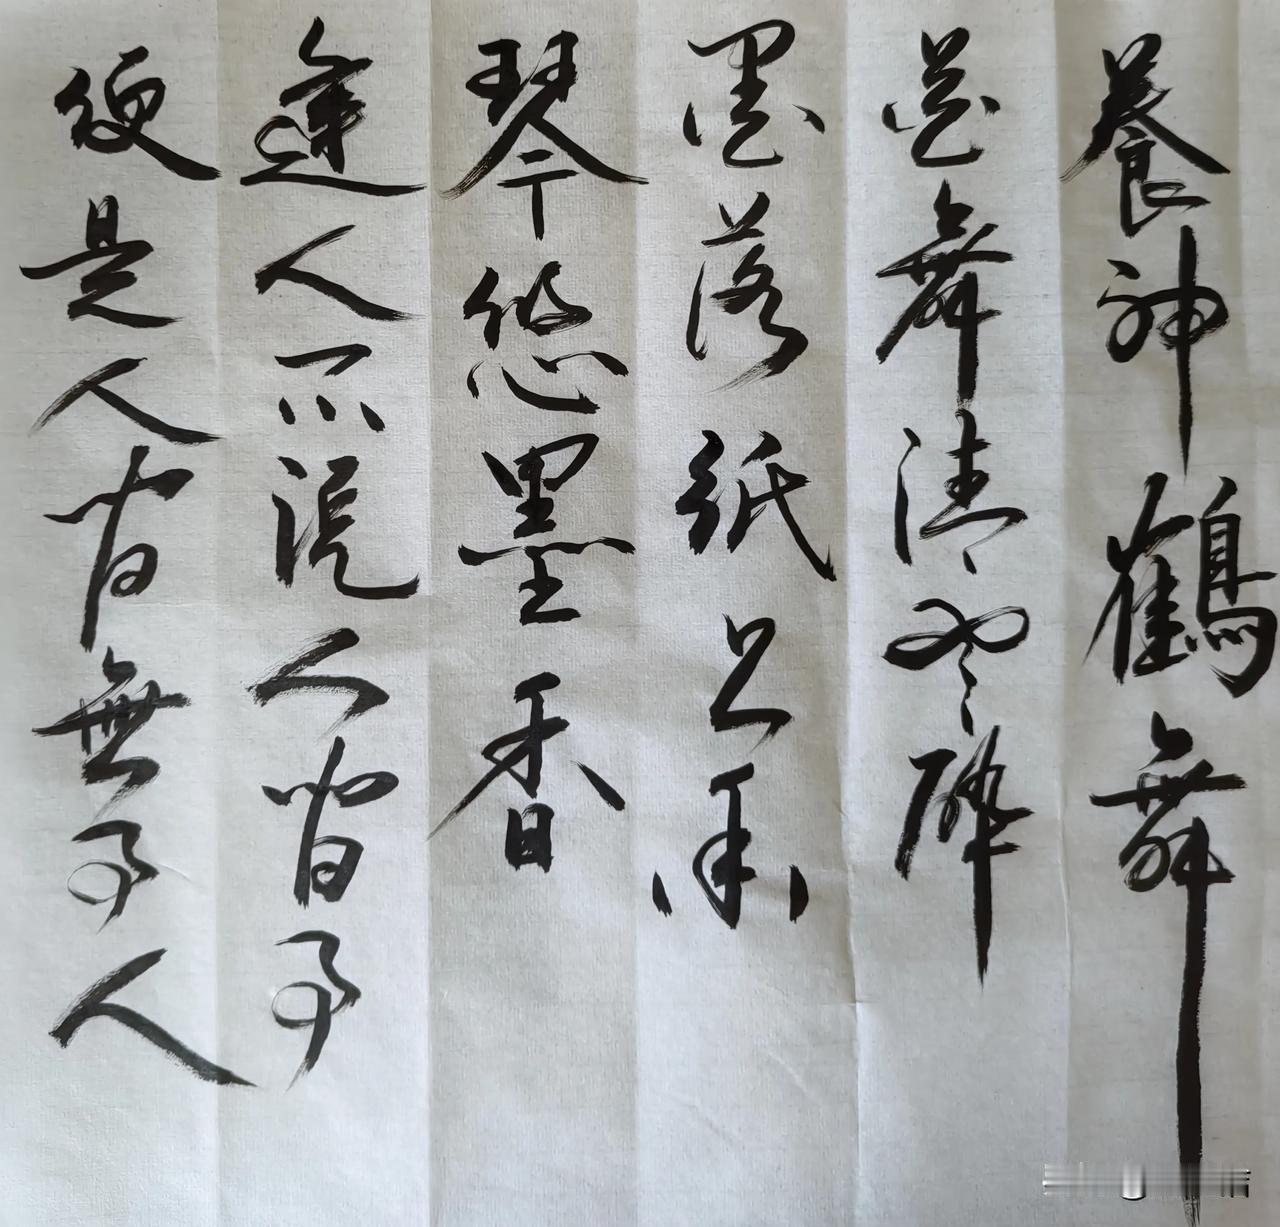 養神鶴舞
舞清醉
墨落紙上
琴悠墨香
逢人不説人間事
便是人間無事人